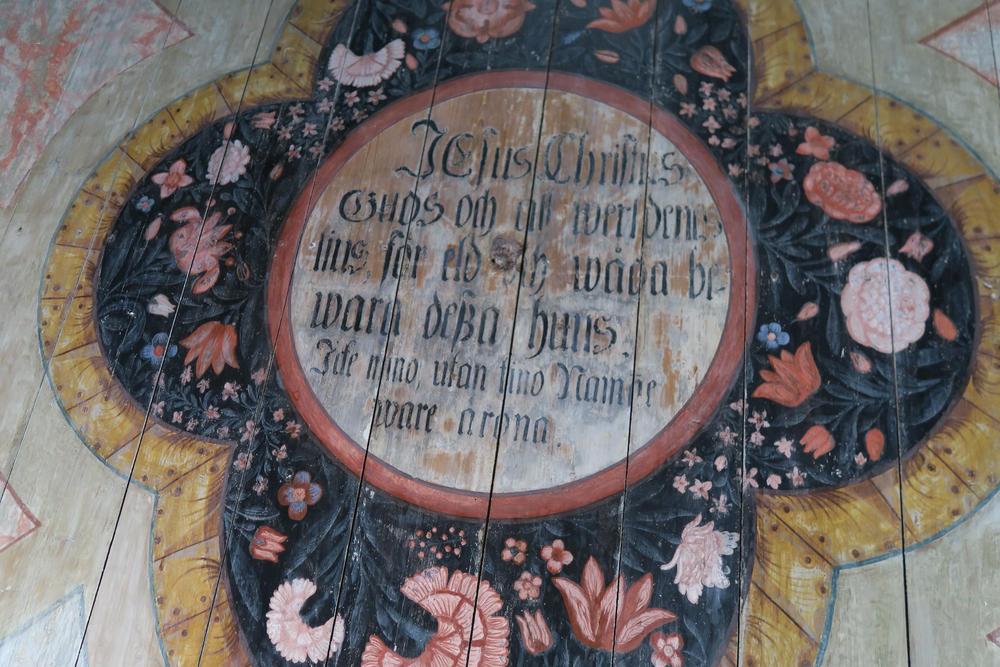 JESus Christus
Guds och all werldenes
lius, för eld och wåda be-
wara deßa huus.
Icke mino, utan tino Nampne
ware arona.